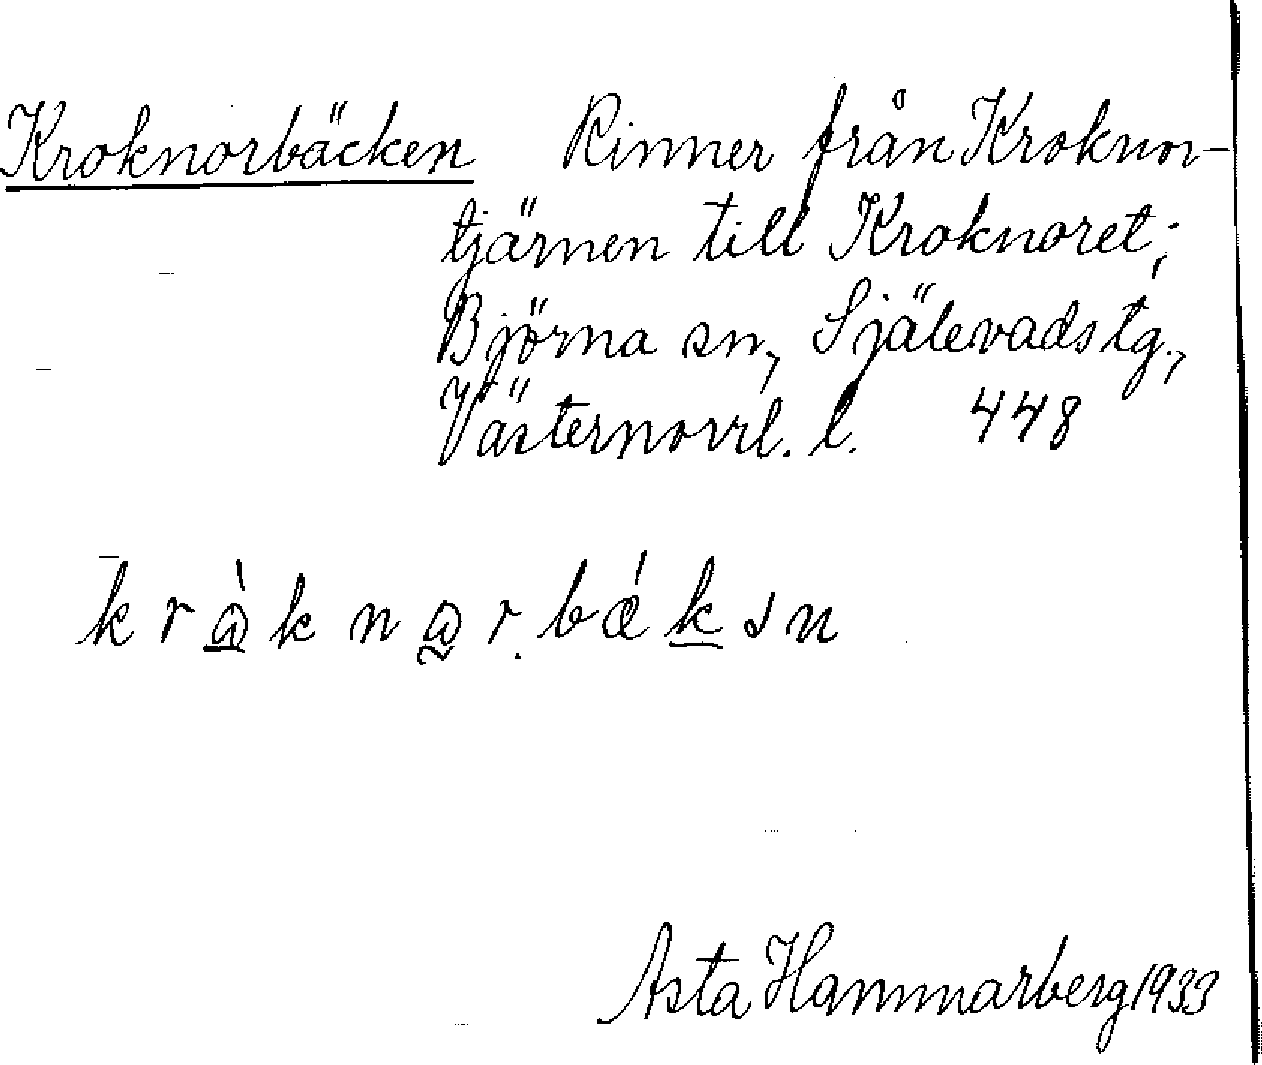 Kroknorbäcken Rinner från Kroknor-
tjärnen till Kroknoret;
Björna sn, Själevads tg.,
Västernorrl. l. 448
Asta Hammarberg 1933